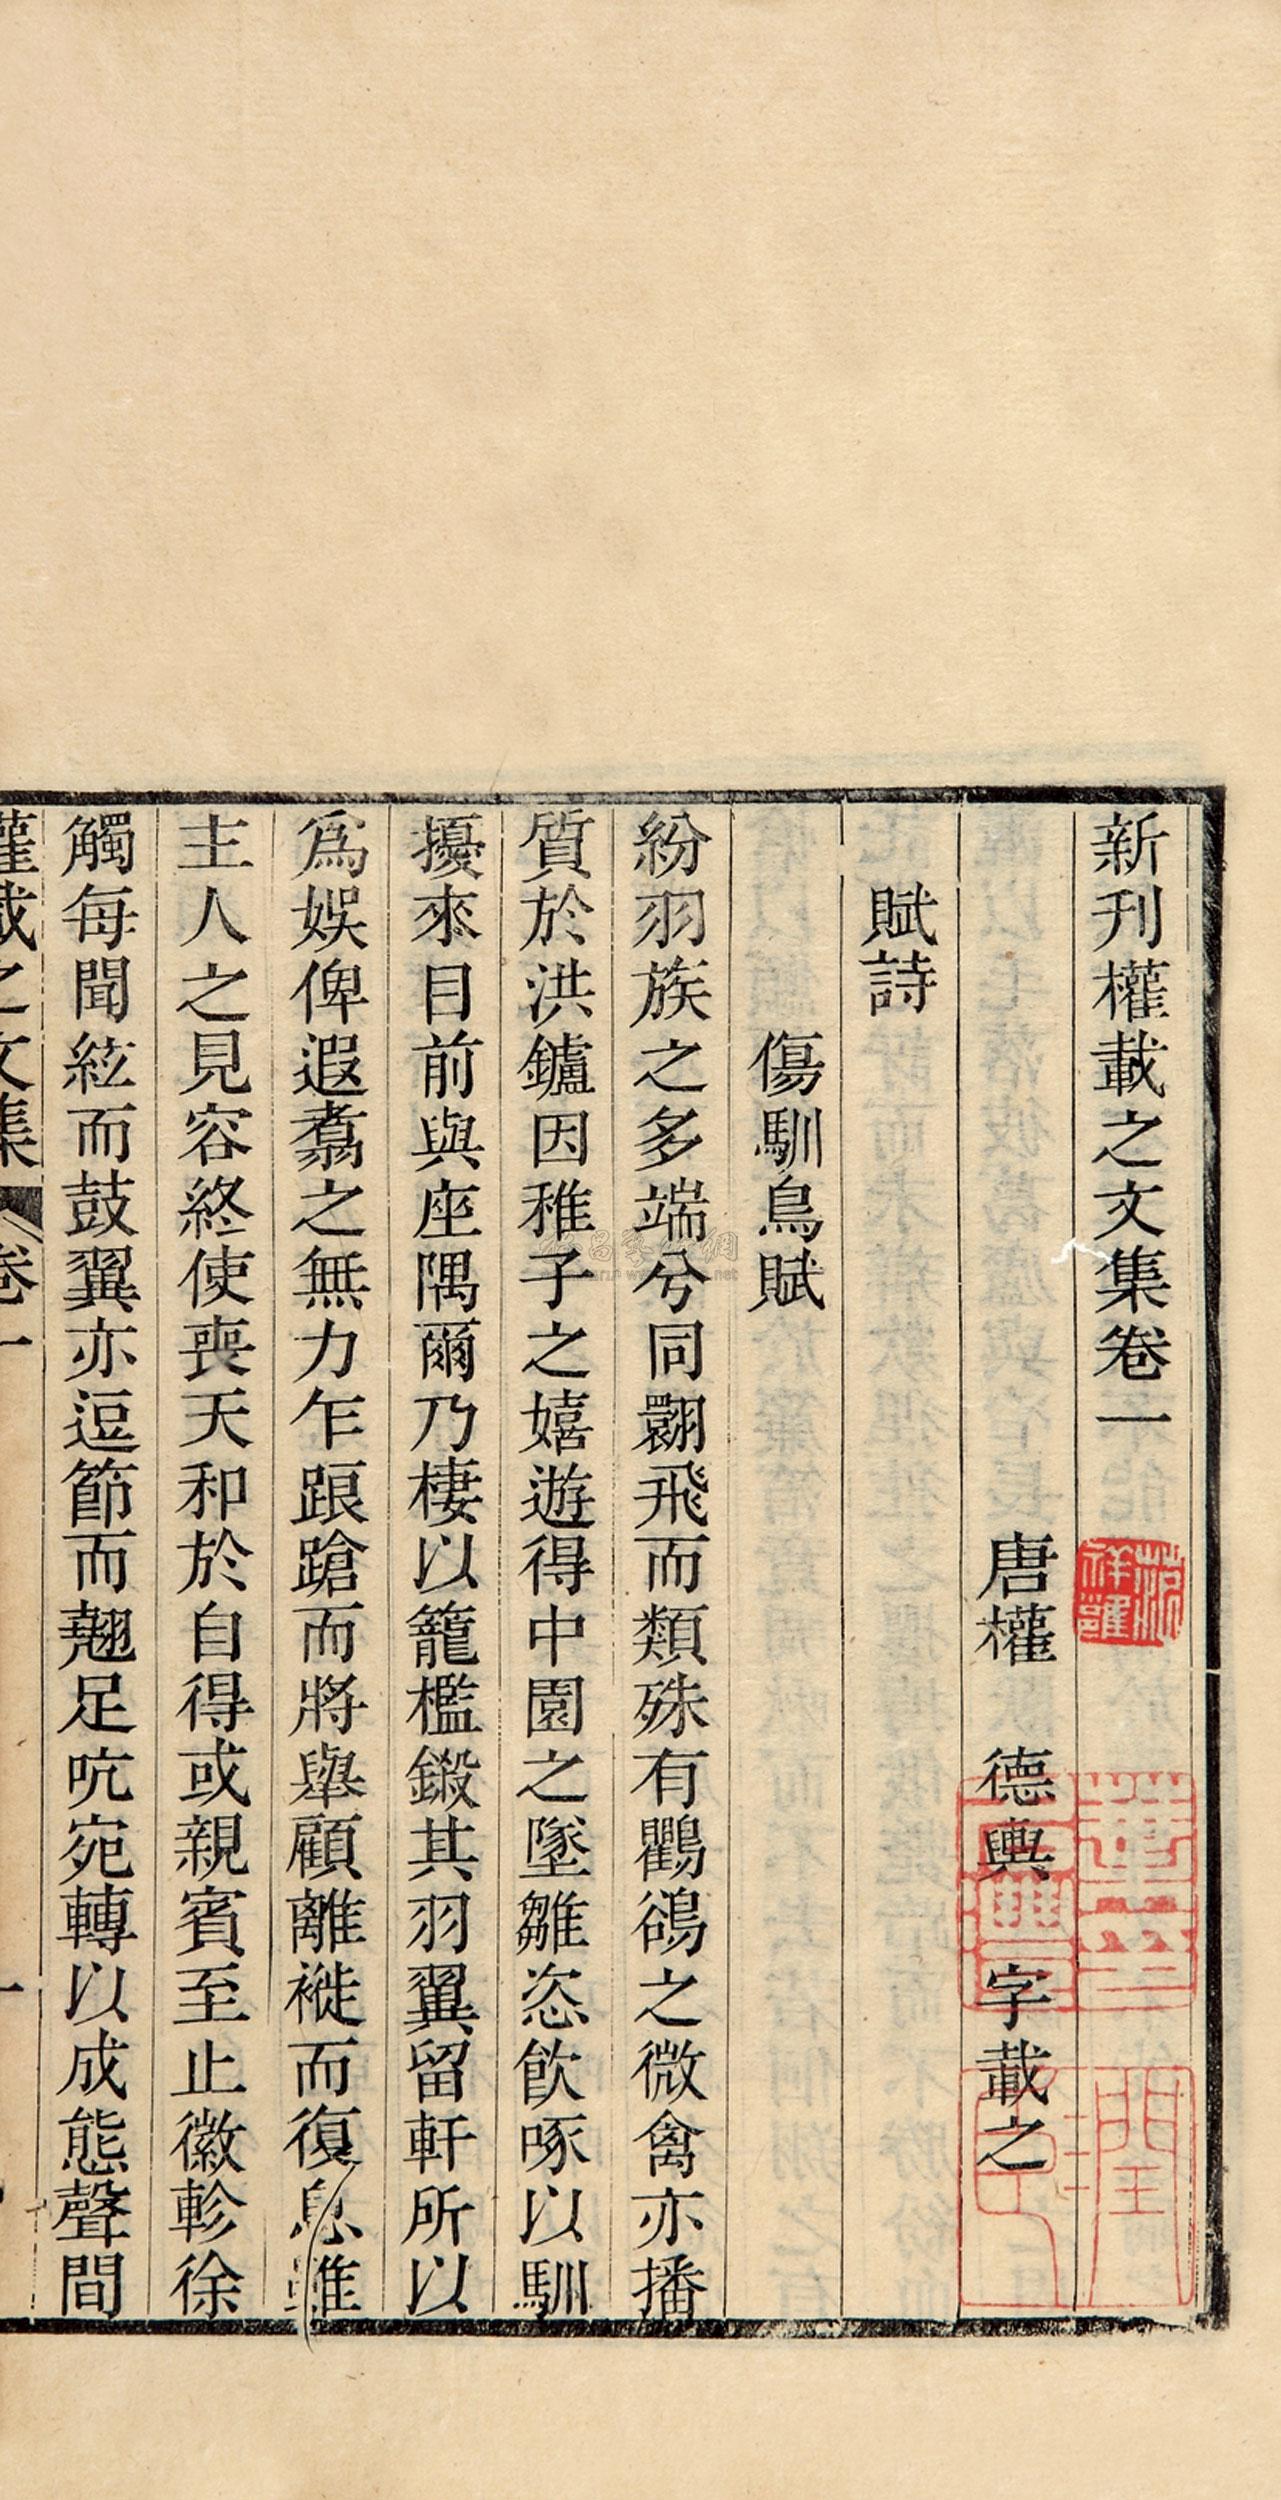 新刊權載之文集卷一
唐權 德輿 字載之
賦詩
傷馴鳥賦
紛羽族之多端兮同翾飛而類殊有鸜鵒之微禽亦播
質於洪鑪因稚子之嬉遊得中園之墜雛恣飲啄以馴
擾來目前與座隅爾乃棲以籠檻鎩其羽翼留軒所以
爲娛俾遐翥之無力乍踉蹌而將舉顧離褷而復息雖
主人之見容終使喪天和於自得或親賓至止徽軫徐
觸每聞絃而鼓翼亦逗節而翹足吭宛轉以成態聲間
權載之文集 卷一